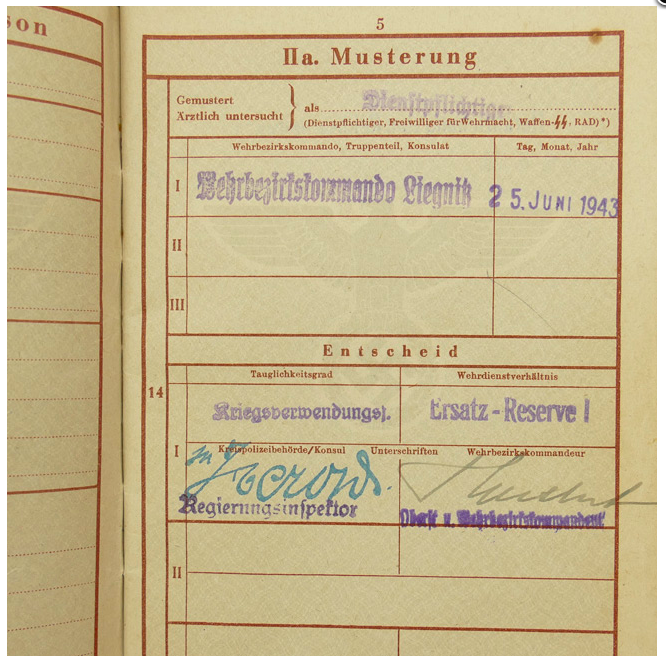 son
5
IIa. Musterung
Gemustert
Ärztlich untersucht
als Dienstpflichtiger
(Dienstpflichtiger, Freiwilliger für Wehrmacht, Waffen-ᛋᛋ, RAD)*)
Wehrbezirkskommando, Truppenteil, Konsulat Tag, Monat, Jahr
I Wehrbezirkskommando Liegnitz 25. JUNI 1943
II
III
Entscheid
Tauglichkeitsgrad Wehrdienstverhältnis
14
Kriegsverwendungsf. Ersatz-Reserve I
I Kreispolizeibehörde/Konsul Unterschriften Wehrbezirkskommandeur
Regierungsinspektor
Oberst u. Wehrbezirkskommandeur
II